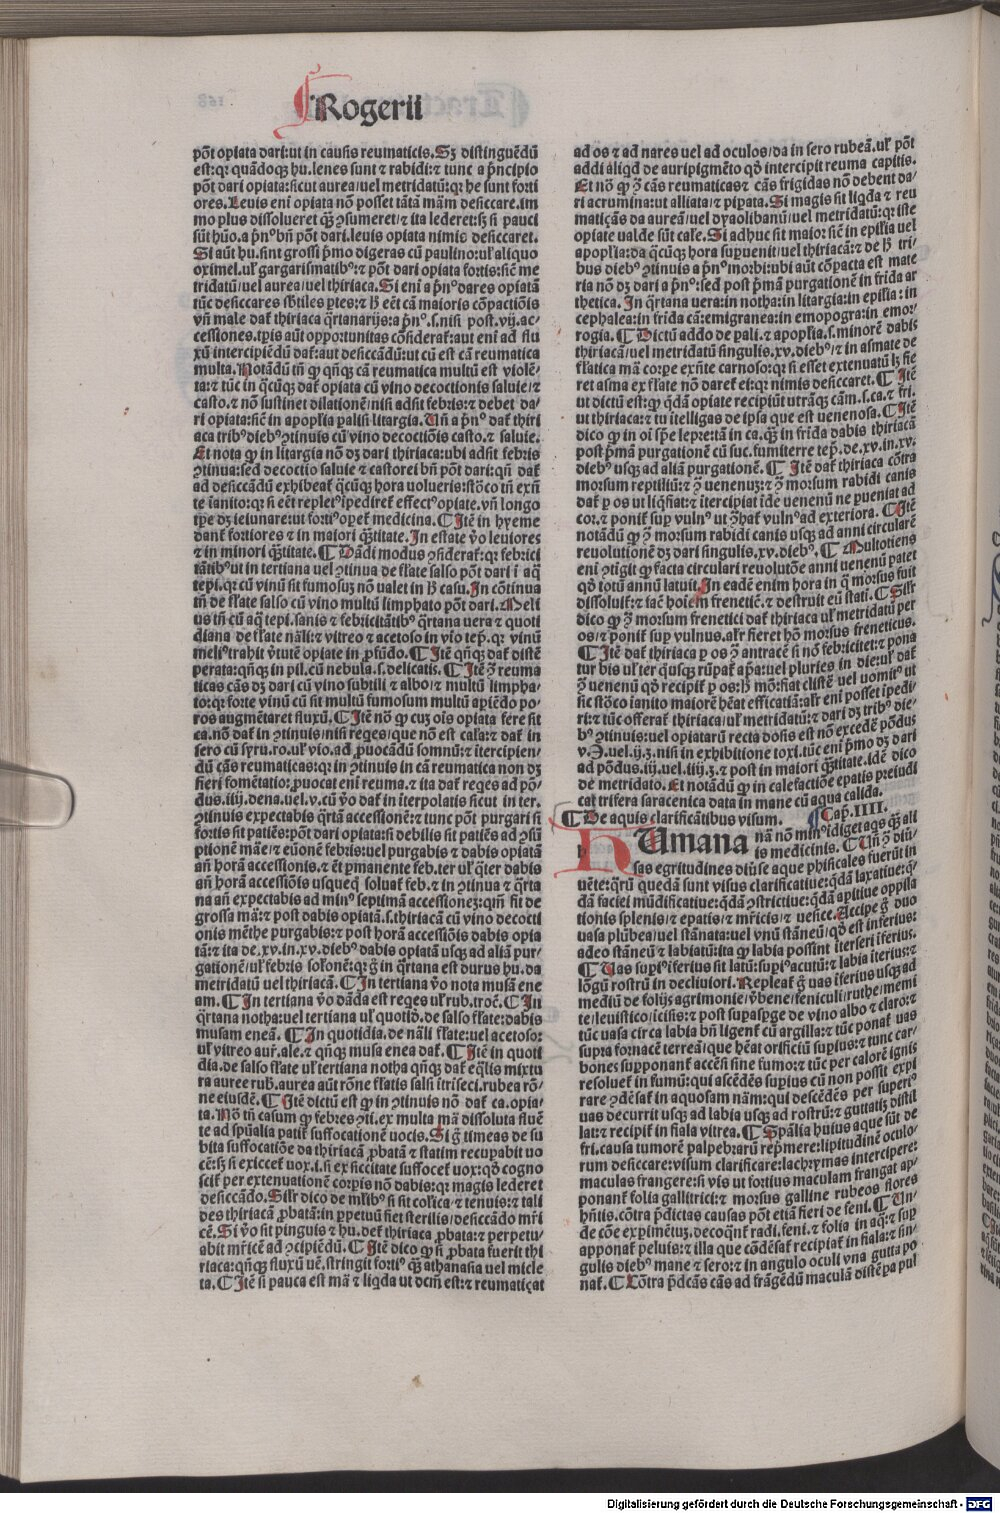 Rogerii
põt opiata dari: ut in causis reumaticis. Sꝫ distinguẽdũ
est: qꝛ quãdoqꝫ hu. lenes sunt ⁊ rabidi: ⁊ tunc a pͥncipio
põt dari opiata: sicut aurea/ uel metridatũ: qꝛ he sunt forti
ores. Leuis eni opiata nõ posset tãtã mãm desiccare. im
mo plus dissolueret qͣꝫ ꝯsumeret/ ⁊ ita lederet: sꝫ si pauci
Si aũt hu. sint grossi pͥmo digeras cũ paulino: uł aliquo
oximel. uł gargarismatibꝰ: ⁊ põt dari opiata fortis: sic̃ me
tridatũ/ uel aurea/ uel thiriaca. Si eni a pͥnº dares opiatã
tũc desiccares sb̃tiles ptes: ⁊ ꝉ eẽt cã maioris cõpactiõis
vñ male dat̃ thiriaca qͣrtanarijs: a pͥnº. s. nisi post. vij. ac/
cessiones. tꝑis aũt oppoꝛtunitas cõsiderat̃: aut eni ad flu
xũ intercipiẽdũ dat̃: aut desiccãdũ: ut cũ est cã reumatica
multa. Notãdũ tñ ꝙ qñqꝫ cã reumatica multũ est violẽ/
ta: ⁊ tũc in qͨũqꝫ dat̃ opiata cũ vino decoctionis saluie/ ⁊
casto. ⁊ nõ sustinet dilationẽ/ nisi adsit febris: ⁊ debet da/
ri opiata: sic̃ in apoplẽa palisi litargia. Vñ a pͥnº dat̃ thiri
aca tribꝰ diebꝰ ꝯtinuis cũ vino decoctiõis casto. ⁊ saluie.
Et nota ꝙ in litargia nõ dꝫ dari thiriaca: ubi adsit febris
ꝯtinua: sed decoctio saluie ⁊ castorei bñ põt dari: qñ dat̃
ad desiccãdũ exhibeat̃ qͨũqꝫ hora uolueris: stõco tñ exñ
te ianito: qꝛ si eẽt repletꝰ ĩpediret̃ effectꝰ opiate. vñ longo
tꝑe dꝫ ieiunare: ut fortiꝰ opet̃ medicina. ¶ Itẽ in hyeme
dant̃ fortiores ⁊ in maiori qͣtitate. In estate ꝟo leuiores
⁊ in minori qͣtitate. ¶ Dãdi modus ꝯsiderat̃: qꝛ febrici
tãtibꝰ ut in tertiana uel ꝯtinua de flate salso põt dari ĩ aq̃
tepi. qꝛ cũ vinũ sit fumosuꝫ nõ ualet in ꝉ casu. In cõtinua
tñ de flate salso cũ vino multũ limphato põt dari. Meli
us tñ cũ aq̃ tepi. sanis ⁊ febricitãtibꝰ qͣrtana uera ⁊ quoti
diana de flate nãli: ⁊ vitreo ⁊ acetoso in vio tep. qꝛ vinũ
meliꝰ trahit ꝟtutẽ opiate in ꝓfũdo. ¶ Itẽ qñqꝫ dat̃ distẽ
perata: qñqꝫ in pil. cũ nebula. s. delicatis. ¶ Itẽ ꝯ̃ reuma
ticas cãs dꝫ dari cũ vino subtili ⁊ albo/ ⁊ multũ limpha/
to: qꝛ forte vinũ cũ sit multũ fumosum multũ apiẽdo po/
ros augmẽtaret fluxũ. ¶ Itẽ nõ ꝙ cuꝫ ois opiata fere sit
ca. nõ dat̃ in ꝯtinuis/ nisi reges/ que nõ est cała: ⁊ dat̃ in
sero cũ syru. ro. uł vio. ad ꝓuocãdũ somnũ: ⁊ ĩtercipien/
dũ cãs reumaticas: qꝛ in ꝯtinuis in cã reumatica non dꝫ
fieri fomẽtatio: ꝓuocat eni reuma. ⁊ ita dat̃ reges ad põ/
dus. iiij. dena. uel. v. cũ ꝟo dat̃ in ĩterpolatis sicut in ter.
ꝯtinuis expectabis qͣrtã accessionẽ: ⁊ tunc põt purgari si
fortis sit patiẽs: põt dari opiata: si debilis sit patiẽs ad ꝯsũ
ptionẽ mãe/ ⁊ eũonẽ febris: uel purgabis ⁊ dabis opiatã
añ horã accessionis. ⁊ ẽt ꝑmanente feb. ter uł qͣter dabis
añ horã accessiõis usqueq̃ soluat̃ feb. ⁊ in ꝯtinua ⁊ qͣrta
na añ expectabis ad minꝰ septimã accessionẽꝫ: qm̃ fit de
grossa mã: ⁊ post dabis opiatã. s. thiriacã cũ vino decocti
onis mẽthe purgabis: ⁊ post horã accessiõis dabis opia
tã: ⁊ ita de. xv. in. xv. diebꝰ dabis opiatã usqꝫ ad aliã pur/
metridatũ uel thiriacã. ¶ In tertiana ꝟo nota musã ene
am. ¶ In tertiana ꝟo dãda est reges uł rub. troc̃. ¶ In
qͣrtana notha: uel tertiana uł quotið. de salso flate: dabis
musam eneã. ¶ In quotidia. de nãli flate: uel acetoso:
uł vitreo aur̃. ale. ⁊ qñqꝫ musa enea dat̃. ¶ Itẽ in quoti
dia. de salso flate uł tertiana notha qñqꝫ dat̃ eq̃lis mixtu
ra auree rub. aurea aũt rõne flatis salsi ĩtriseci. rubea rõ/
ne eiusdẽ. ¶ Itẽ dictũ est ꝙ in ꝯtinuis nõ dat̃ ca. opia/
ta. Nõ tñ casum ꝙ febres ꝯti. ex multa mã dissoluta fluẽ
te ad spũalia patit̃ suffocationẽ uocis. Si g̃ timeas de su
bita suffocatiõe da thiriacã ꝓbatã ⁊ statim recupabit uo
cẽ: sꝫ si exiccet̃ uox. i. si ex siccitate suffocet̃ uox: qð cogno
scit̃ per extenuationẽ corꝑis nõ dabis: qꝛ magis lederet
desiccãdo. Silr̃ dico de ml̃ibꝰ si sit colr̃ica/ ⁊ tenuis: ⁊ tali
des thiriacã ꝓbatã: in ꝑpetuũ fiet sterilis/ desiccãdo mr̃i
cẽ. Si ꝟo sit pinguis ⁊ hu. det̃ thiriaca ꝓbata: ⁊ perpetu/
abit mr̃icẽ ad ꝯcipiẽdũ. ¶ Itẽ dico ꝙ si ꝓbata fuerit thi
riaca: qñqꝫ fluxũ uẽ. stringit fortiꝰ qͣꝫ athanasia uel micle
ta. ¶ Itẽ si pauca est mã ⁊ liq̃da ut dcm̃ est: ⁊ reumatiçat
ad os ⁊ ad nares uel ad oculos/ da in sero rubeã. uł põt
addi aliqð de auripigmẽto qð intercipit reuma capitis.
Et nõ ꝙ ꝯ̃ cãs reumaticas ⁊ cãs frigidas nõ debent da/
ri acrumina: ut alliata/ ⁊ pipata. Si magis sit liq̃da ⁊ reu
matiçãs da aureã/ uel dyaolibanũ/ uel metridatũ: qꝛ iste
opiate ualde sũt cale. Si adhuc sit maior sic̃ in epil̃ia uel
apoplẽa: da qͨũqꝫ hora supuenit/ uel thiriacã: ⁊ de ꝉ tri/
bus diebꝰ ꝯtinuis a pͥnº morbi: ubi aũt cõpacta est mate
ria nõ dꝫ dari a pͥnº: sed post pͥmã purgationẽ in frida ar
thetica. In qͣrtana uera: in notha: in litargia: in epil̃ia: in
cephalea: in frida cã: emigranea: in emopogra: in emor/
rogia. ¶ Dictũ addo de pali. ⁊ apoplẽa. s. minorẽ dabis
thiriacã/ uel metridatũ singulis. xv. diebꝰ/ ⁊ in asmate de
flatica mã corpe exñte carnoso: qꝛ si esset extenuatũ ꝉ fie
ret asma ex flate nõ daret̃ ei: qꝛ nimis desiccaret. ¶ Itẽ
ut dictũ est: ꝙ qͣdã opiate recipiũt utrãqꝫ cãm. s. ca. ⁊ fri.
ut thiriaca: ⁊ tu ĩtelligas de ipsa que est uenenosa. ¶ Itẽ
dico ꝙ in oi sꝑe lepꝛe: tã in ca. qͣꝫ in frida dabis thiriacã
post pͥmã purgationẽ cũ suc. fumiterre tep̃. de. xv. in. xv.
diebꝰ usqꝫ ad aliã purgationẽ. ¶ Itẽ dat̃ thiriaca cõtra
morsum reptiliũ: ⁊ ꝯ̃ uenenuꝫ: ⁊ ꝯ̃ morsum rabidi canis
dat̃ p os ut liq̃fiat: ⁊ ĩtercipiat ĩde uenenũ ne pueniat ad
cor. ⁊ ponit̃ sup vulnꝰ ut ꝯ̃hat̃ vulnꝰ ad exteriora. ¶ Itẽ
notãdũ ꝙ ꝯ̃ morsum rabidi canis usqꝫ ad anni circularẽ
reuolutionẽ dꝫ dari singulis. xv. diebꝰ. ¶ Multotiens
eni ꝯtigit ꝙ facta circulari reuolutõe anni uenenũ patet
qð totũ annũ latuit. In eadẽ enim hora in q̃ morsus fuit
dissoluit̃: ⁊ iac̃ hoiẽm frenetic̃. ⁊ destruit eũ stati. ¶ Silr̃
dico ꝙ ꝯ̃ morsum frenetici dat̃ thiriaca uł metridatũ per
os/ ⁊ ponit̃ sup vulnus. alr̃ fieret hõ morsus freneticus.
¶ Itẽ dat̃ thiriaca p os ꝯ̃ antracẽ si nõ feb̃ricitet: ⁊ pona
tur bis uł ter qͨusqꝫ rũpat̃ apã: uel pluries in die: uł dat̃
ꝯ̃ uenenũ qð recipit̃ p os: ꝉ mõ: fiat clistẽ uel uomitꝰ ut
sic stõco ianito maiorẽ hẽat efficatiã: alr̃ eni posset ĩpedi/
ri: ⁊ tũc offerat̃ thiriaca/ uł metridatũ: ⁊ dari dꝫ tribꝰ die/
bꝰ ꝯtinuis: uel opiatarũ recta dosis est nõ excedẽ põdus
ad põdus. iij. uel. iiij. ʒ. ⁊ post in maiori qͣtitate. idẽ dico
de metridato. Et notãdũ ꝙ in calefactiõe epatis preiudi
cat trifera saracenica data in mane cũ aqua calida.
¶ De aquis clarificãtibus visum. ¶ Cap̃. IIII.
hUmana nãn nõ minꝰ idiget aqs qͣꝫ ali
is medicinis. ¶ Vñ ꝯ̃ diũ/
sas egritudines diũse aque phisicales fuerũt in
uẽte: qͣrũ quedã sunt visus clarificatiue: qͣdã laxatiue: q̃
dã faciei mũdificatiue: qͣdã ꝯstrictiue: qͣdã apitiue oppila
tionis splenis/ ⁊ epatis/ ⁊ mr̃icis/ ⁊ uesice. Accipe g̃ duo
uasa plũbea/ uel stãnata: uel vnũ stãneũ/ qð est inferius:
adeo stãneũ ⁊ labiatũ: ita ꝙ labia possint ĩterseri ĩferius.
¶ Uas supiꝰ ĩferius sit latũ: supiꝰ acutũ: ⁊ labia ĩterius: ⁊
lõgũ rostrũ in decliuiori. Repleat̃ g̃ uas ĩferius usqꝫ ad
mediũ de folijs agrimonie/ ꝟbene/ feniculi/ ruthe/ memi
te/ leuistico/ ĩcisis: ⁊ post supaspge de vino albo ⁊ claro: ⁊
tũc uasa circa labia bñ ligent̃ cũ argilla: ⁊ tũc ponat̃ uas
supra fornacẽ terreã/ que hẽat orificiũ supius: ⁊ tunc car/
bones supponant̃ accẽsi sine fumo: ⁊ tũc per calorẽ ignis
resoluet̃ in fumũ: qui ascẽdẽs supius cũ non possit expi
rare ꝯdẽsat̃ in aquosam nãm: qui descẽdẽs per superiꝰ
uas decurrit usqꝫ ad labia usqꝫ ad rostrũ: ⁊ guttatiꝫ distil
lat: ⁊ recipit̃ in fiala vitrea. ¶ Spãlia huius aque sũt de
fri. causa tumorẽ palpebrarũ repͥmere: lipitudinẽ oculo/
rum desiccare: visum clarificare: lachrymas intercipere:
maculas frangere: si vis ut fortius maculam frangat ap/
ponant̃ folia gallitrici: ⁊ morsus galline rubeos flores
hñtis. cõtra pͥdictas causas põt etiã fieri de feni. ¶ Un/
de cõe expimẽtuꝫ. decoqͣnt̃ radi. feni. ⁊ folia in aq̃: ⁊ sup
apponat̃ peluis: ⁊ illa que cõdẽsat̃ recipiat̃ in fiala: ⁊ sin/
gulis diebꝰ mane ⁊ sero: ⁊ in angulo oculi vna gutta po
nat̃. ¶ Cõtra pͥdcãs cãs ad frãgẽdũ maculã distẽpa pul
Digitalisierung gefördert durch die Deutsche Forschungsgemeinschaft - DFG